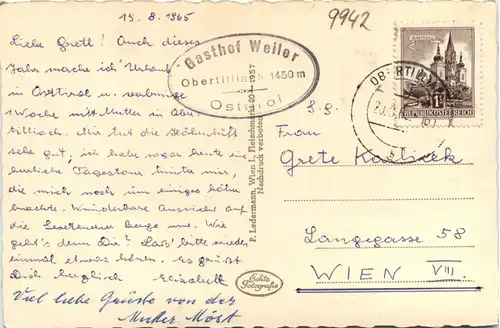 15. 8. 1965
9942
Liebe Gretl! Auch dieses
Jahr mache ich Urlaub
in Osttirol u. verbringe
1 Woche mit Mutter in Ober-
tilliach. Mir tut die Höhenluft
sehr gut, ich habe sogar heute eine
herrliche Tagestour hinter mir,
die mich noch um einiges höher
brachte. Wunderbare Aussicht auf
die Berge uns. Wie
geht's denn Dir? Laß' bitte wieder
einmal etwas hören. Es grüßt
Dich herzlichst Elisabeth
Viel liebe Grüsse von der
Mutter Möst
Gasthof Weiler
Obertilliach 1450 m
Osttirol
P. Ledermann, Wien I., Fleischmarkt 20 - 1957
Nachdruck verboten
Echte
Fotografie
OBERTILLIACH
REPUBLIK ÖSTERREICH
S.g.
Frau
Grete
Langegasse 58
WIEN VIII.